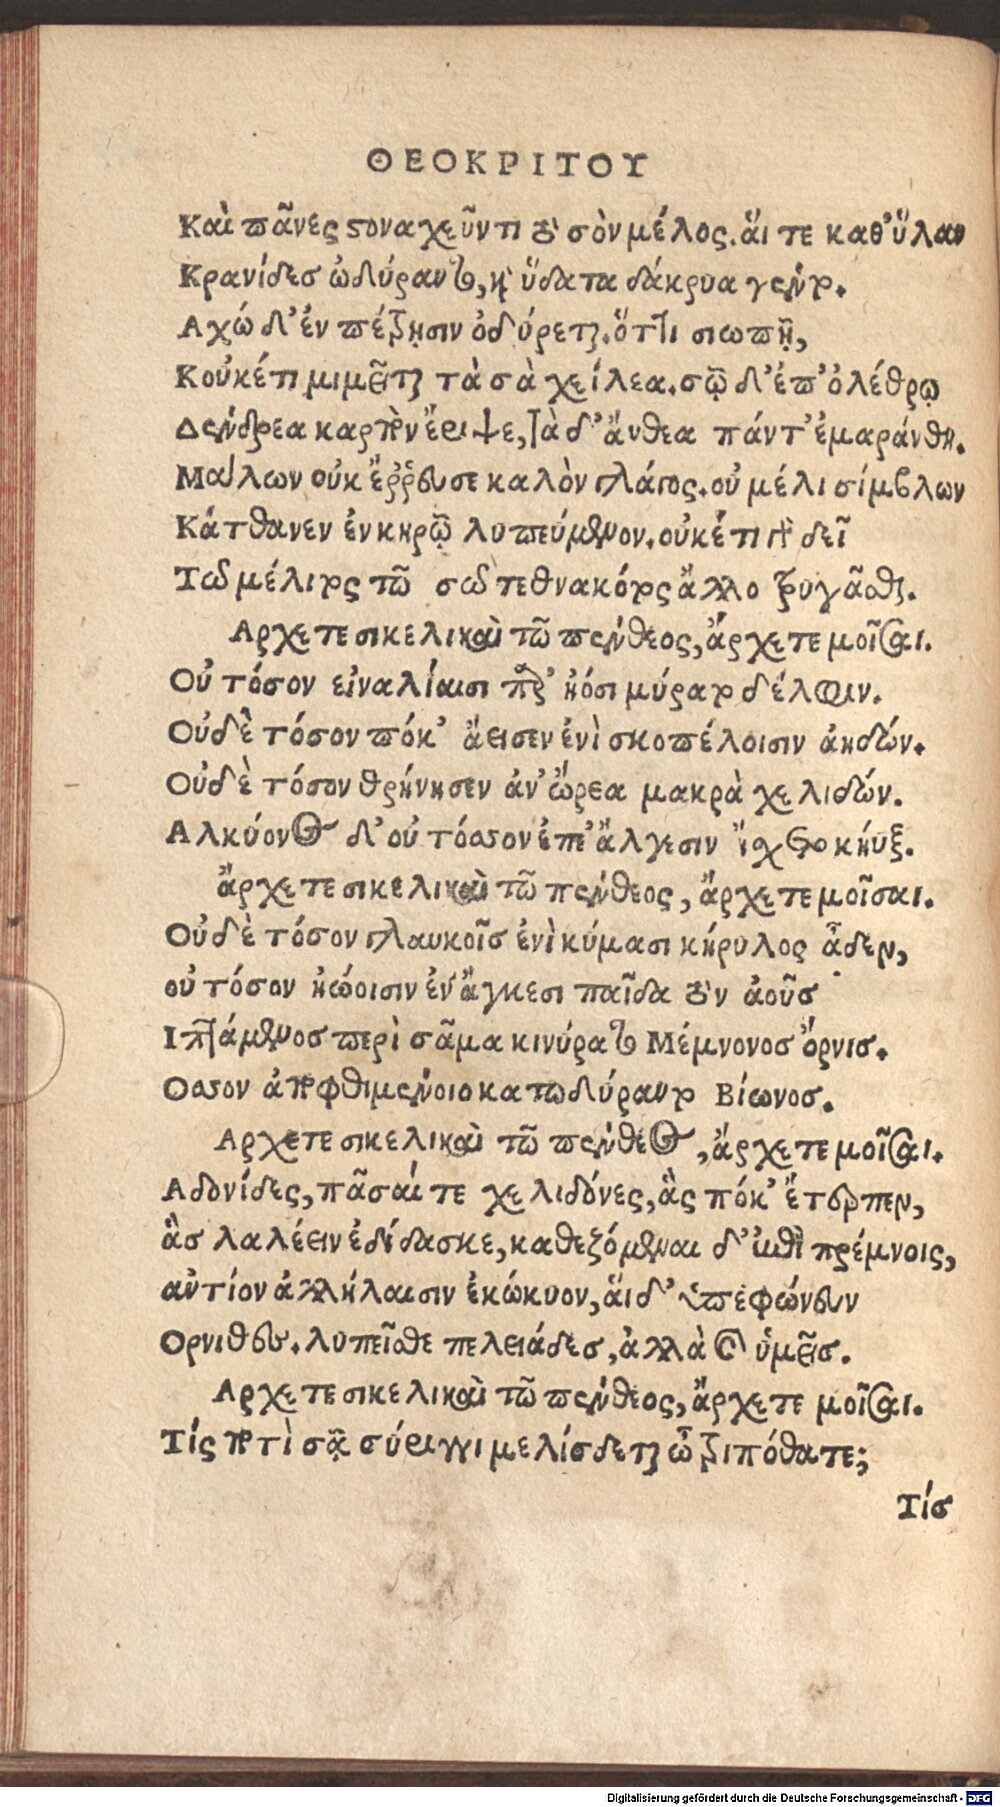 ΘΕΟΚΡΙΤΟΥ
Καὶ πᾶνες στοναχεῦντι τὸ σὸν μέλος. ἅι τε καθ' ὕλαν
Κρανίδεσ ὠδύραντο, κὴ ὕδατα δάκρυα γένντο.
Αχώ δ' ἐν πέτρῃσιν ὀδύρεται. ὅττι σιωπῇ,
Κοὐκέτι μιμεῖται τὰ σὰ χείλεα. σῷ δ' ἐπ' ὀλέθρῳ
Δένδρεα καρπὸν ἔριψε, τὰ δ' ἄνθεα πάντ' ἐμαράνθη.
Μάλων οὐκ ἔῤῥευσε καλὸν γλάγος. οὐ μέλι σίμβλων
Κάτθανεν ἐν κηρῷ λυπεύμενον. οὐκέτι γὰρ δεῖ
Τῶ μέλιτος τῶ σῶ τεθνακότος ἄλλο τρυγᾶσθαι.
Αρχετε σικελικαὶ τῶ πένθεος, ἄρχετε μοῖσαι.
Οὐ τόσον εἰναλίαισι παρ' ἠόσι μύρατο δέλφιν.
Οὐδὲ τόσον πόκ' ἄεισεν ἐνὶ σκοπέλοισιν ἀηδών.
Οὐδὲ τόσον θρήνησεν ἀν' ὤρεα μακρὰ χελιδών.
Αλκύονος δ' οὐ τόσσον ἐπ' ἄλγεσιν ἴαχε κήυξ.
ἄρχετε σικελικαὶ τῶ πένθεος, ἄρχετε μοῖσαι.
Οὐδὲ τόσον γλαυκοῖσ ἐνὶ κύμασι κήρυλος ᾆδεν,
οὐ τόσον ἠῴοισιν ἐν ἄγκεσι παῖδα τὸν ἀοῦσ
Ιπτάμενοσ περὶ σᾶμα κινύρατο Μέμνονοσ ὄρνισ.
Οσσον ἀποφθιμένοιο κατωδύραντο Βίωνοσ.
Αρχετε σικελικαὶ τῶ πένθεος, ἄρχετε μοῖσαι.
Αδονίδες, πᾶσαί τε χελιδόνες, ἃς πόκ' ἔτερπεν,
ἃσ λαλέειν ἐδίδασκε, καθεζόμεναι δ' ἐπὶ πρέμνοις,
αὐτίον ἀλλήλαισιν ἐκώκυον, ἅι δ' ὑπεφώνευν
Ορνιθες. λυπεῖσθε πελειάδεσ, ἀλλὰ καὶ ὑμεῖσ.
Αρχετε σικελικαὶ τῶ πένθεος, ἄρχετε μοῖσαι.
Τίς ποτὶ σᾷ σύριγγι μελίσδεται ὦ τριπόθατε;
Τίσ
Digitalisierung gefördert durch die Deutsche Forschungsgemeinschaft - DFG